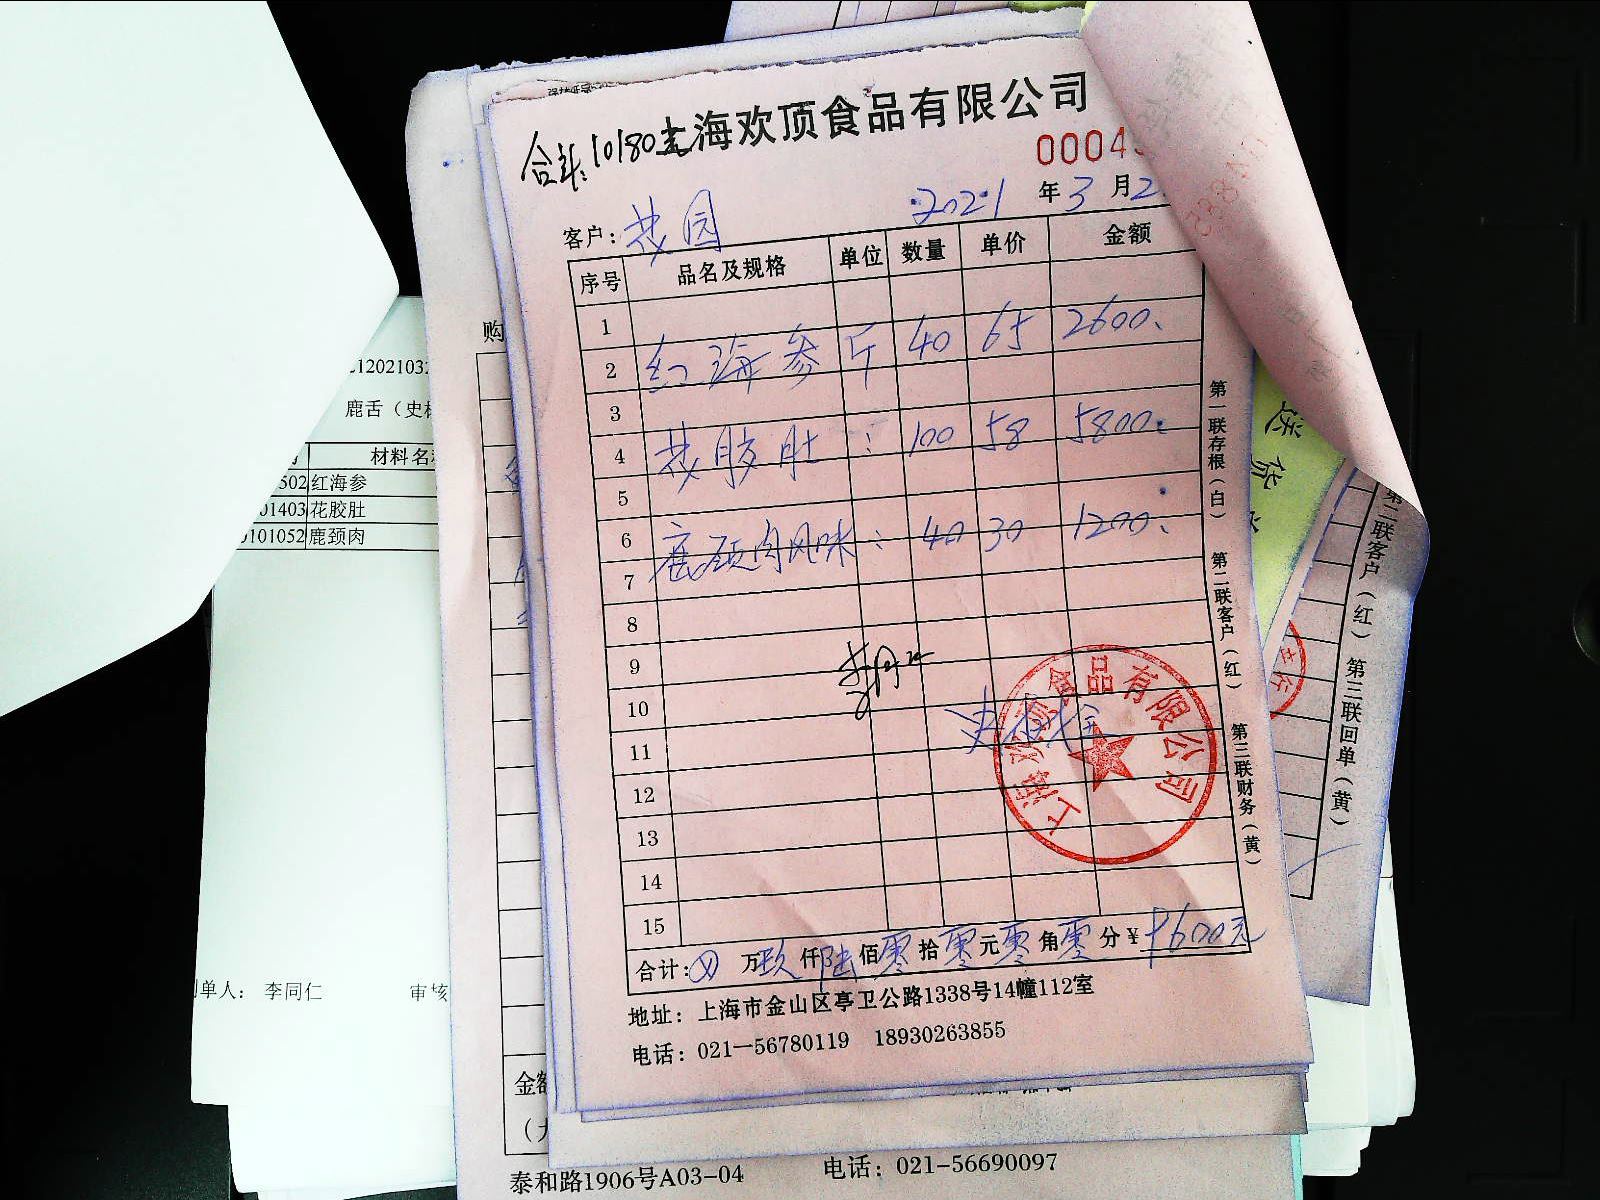 上海欢顶食品有限公司
合计：10180
00043
2021年3月2
客户：花园
序号 品名及规格 单位 数量 单价 金额
1
2 红海参 斤 40 65 2600.
3
4 花胶肚 : 100 58 5800.
5
6 鹿颈肉风味 : 40 30 1200.
7
8
9
10
11
12
13
14
15
合计：⊗万玖仟陆佰零拾零元零角零分￥9600元
地址：上海市金山区亭卫公路1338号14幢112室
电话：021—56780119 18930263855
第一联存根（白） 第二联客户（红） 第三联财务（黄）
上海欢顶食品有限公司
购
1202103
鹿舌（史
材料名
502 红海参
01403 花胶肚
0101052 鹿颈肉
制单人： 李同仁 审核
金额
泰和路1906号A03-04 电话：021-56690097
送货
第二联客户（红） 第三联回单（黄）